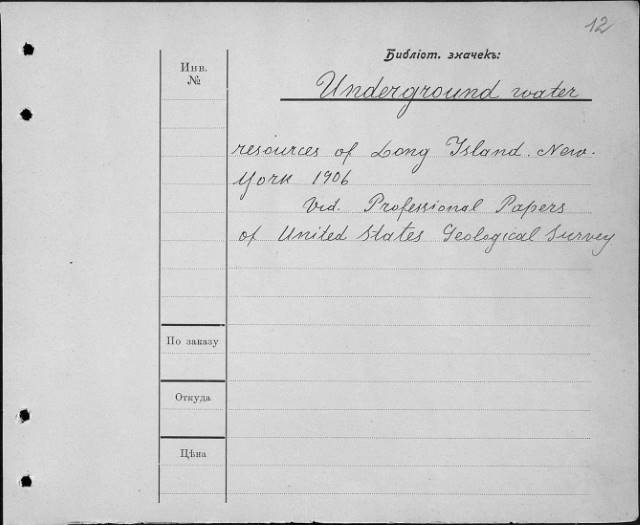 12
Библіот. значекъ:
Инв.
№
Underground water
resources of Long Island. New-
York 1906
Vid. Professional Papers
of United States Geological Survey
По заказу
Откуда
Цѣна